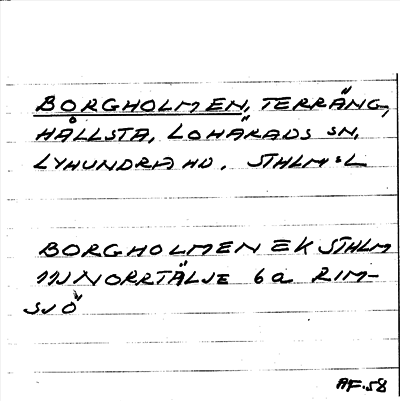 BORGHOLMEN, TERRÄNG,
HÅLLSTA, LOHÄRADS SN,
LYHUNDRA HD. STHLM:L
BORGHOLMEN EK STHLM
11J NORRTÄLJE 6a RIM-
SJÖ
AF.58